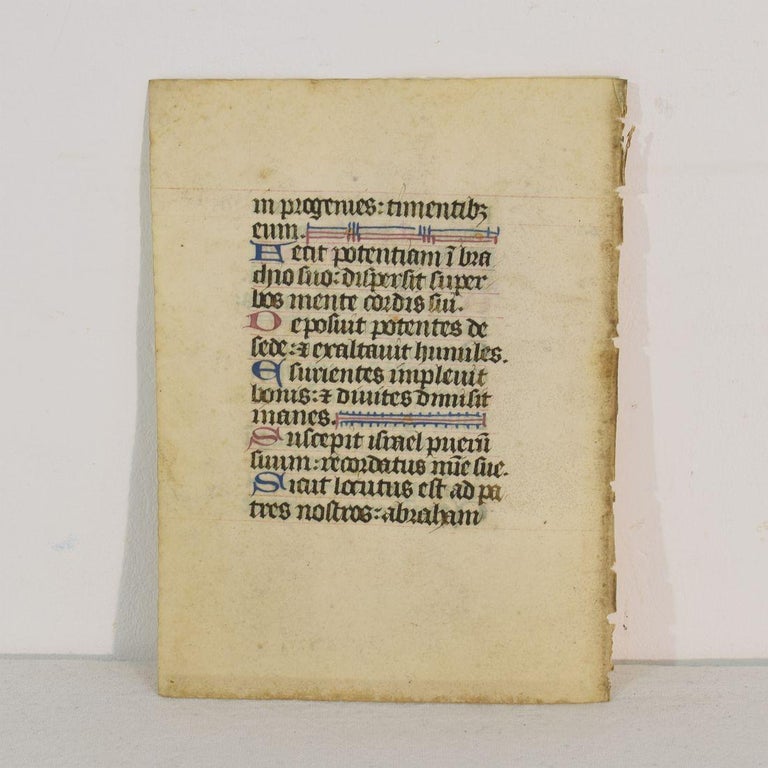 in progenies: timentibȝ
eum.
Fecit potentiam ī bra
chio suo: dispersit super
bos mente cordis sui.
Deposuit potentes de
sede: ⁊ exaltavit humiles.
Esurientes implevit
bonis: ⁊ divites dimisit
inanes.
Suscepit israel puerū
suum: recordatus mīe sue.
Sicut locutus est ad pa
tres nostros: abraham